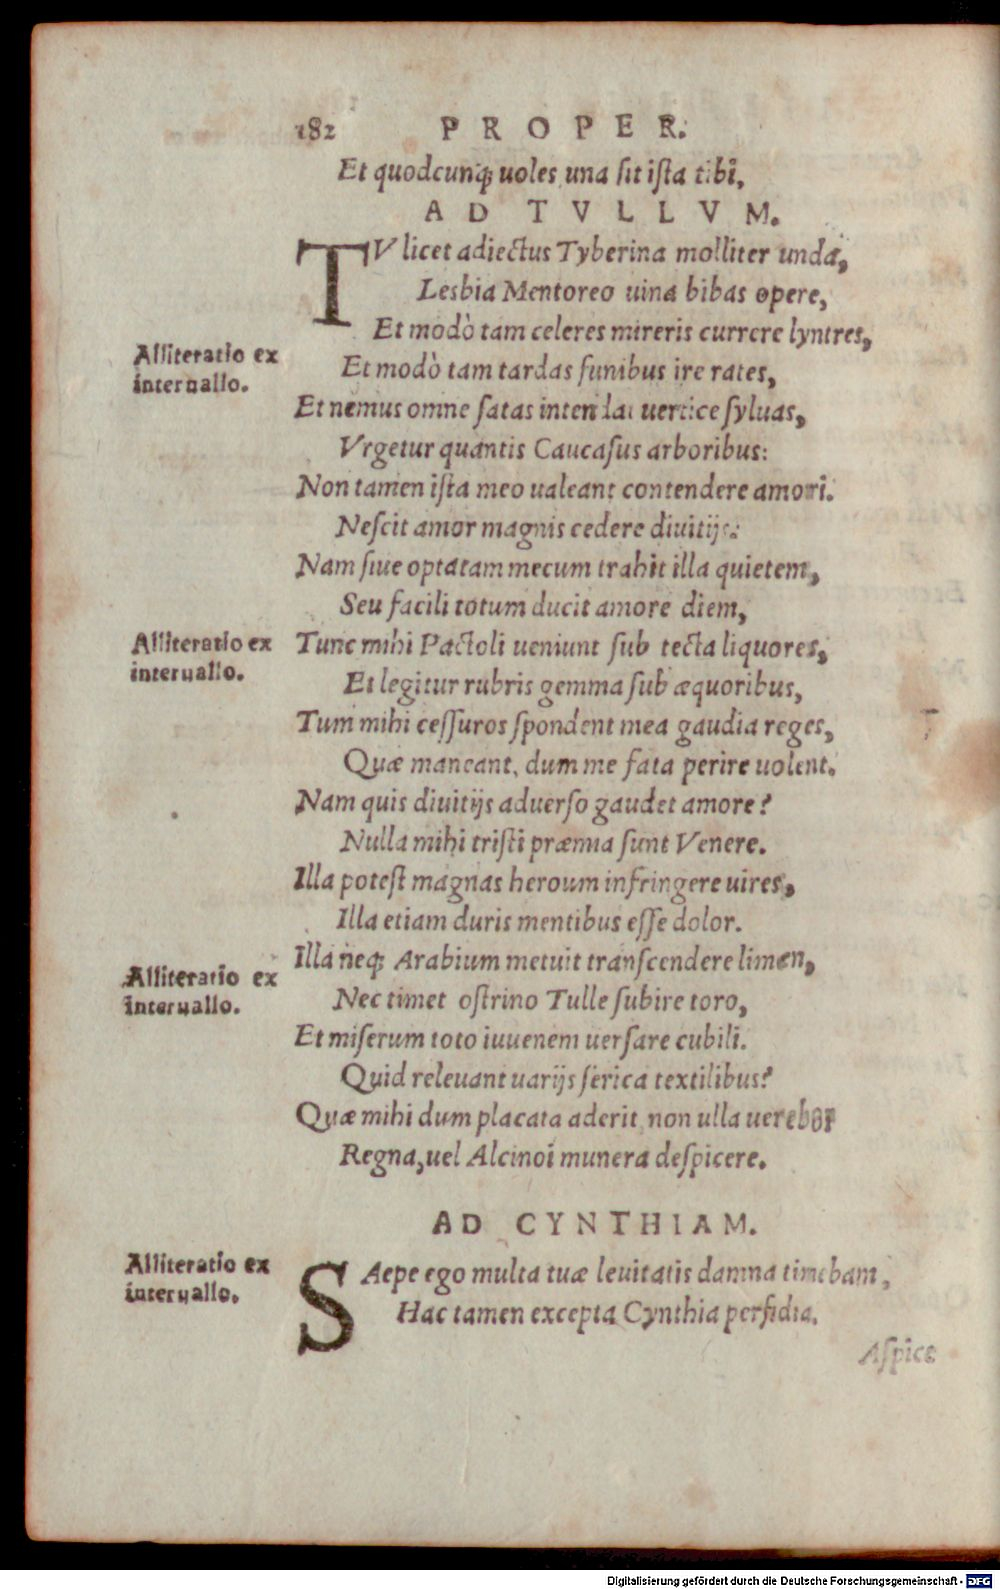 182 PROPER.
Et quodcunq; uoles una sit ista tibi,
AD TVLLVM.
TV licet adiectus Tyberina molliter unda,
Lesbia Mentoreo uina bibas opere,
Et modò tam celeres mireris currere lyntres,
Alliteratio ex
interuallo.
Et modò tam tardas funibus ire rates,
Et nemus omne satas intendat uertice syluas,
Vrgetur quantis Caucasus arboribus:
Non tamen ista meo ualeant contendere amori.
Nescit amor magnis cedere diuitijs:
Nam siue optatam mecum trahit illa quietem,
Seu facili totum ducit amore diem,
Alliteratio ex
interuallo.
Tunc mihi Pactoli ueniunt sub tecta liquores,
Et legitur rubris gemma sub æquoribus,
Tum mihi cessuros spondent mea gaudia reges,
Quæ maneant, dum me fata perire uolent.
Nam quis diuitijs aduerso gaudet amore?
Nulla mihi tristi præmia sunt Venere.
Illa potest magnas heroum infringere uires,
Illa etiam duris mentibus esse dolor.
Illa neq; Arabium metuit transcendere limen,
Alliteratio ex
interuallo.
Nec timet ostrino Tulle subire toro,
Et miserum toto iuuenem uersare cubili.
Quid releuant uarijs serica textilibus?
Quæ mihi dum placata aderit non ulla uerebor
Regna, uel Alcinoi munera despicere.
AD CYNTHIAM.
Alliteratio ex
interuallo.
SAepe ego multa tuæ leuitatis damna timebam,
Hac tamen excepta Cynthia perfidia.
Aspice
Digitalisierung gefördert durch die Deutsche Forschungsgemeinschaft - DFG